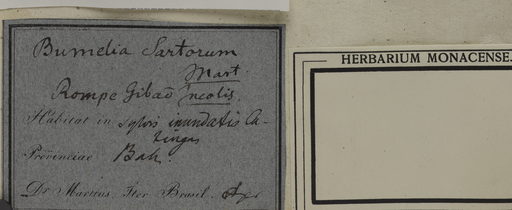 Bumelia Sartorum
Mart
Rompe Gibaõ incolis.
Habitat in sylvis inundatis Ca-
tingas
Provinciae Bah.
Dr. Martius, Iter Brasil.
HERBARIUM MONACENSE.